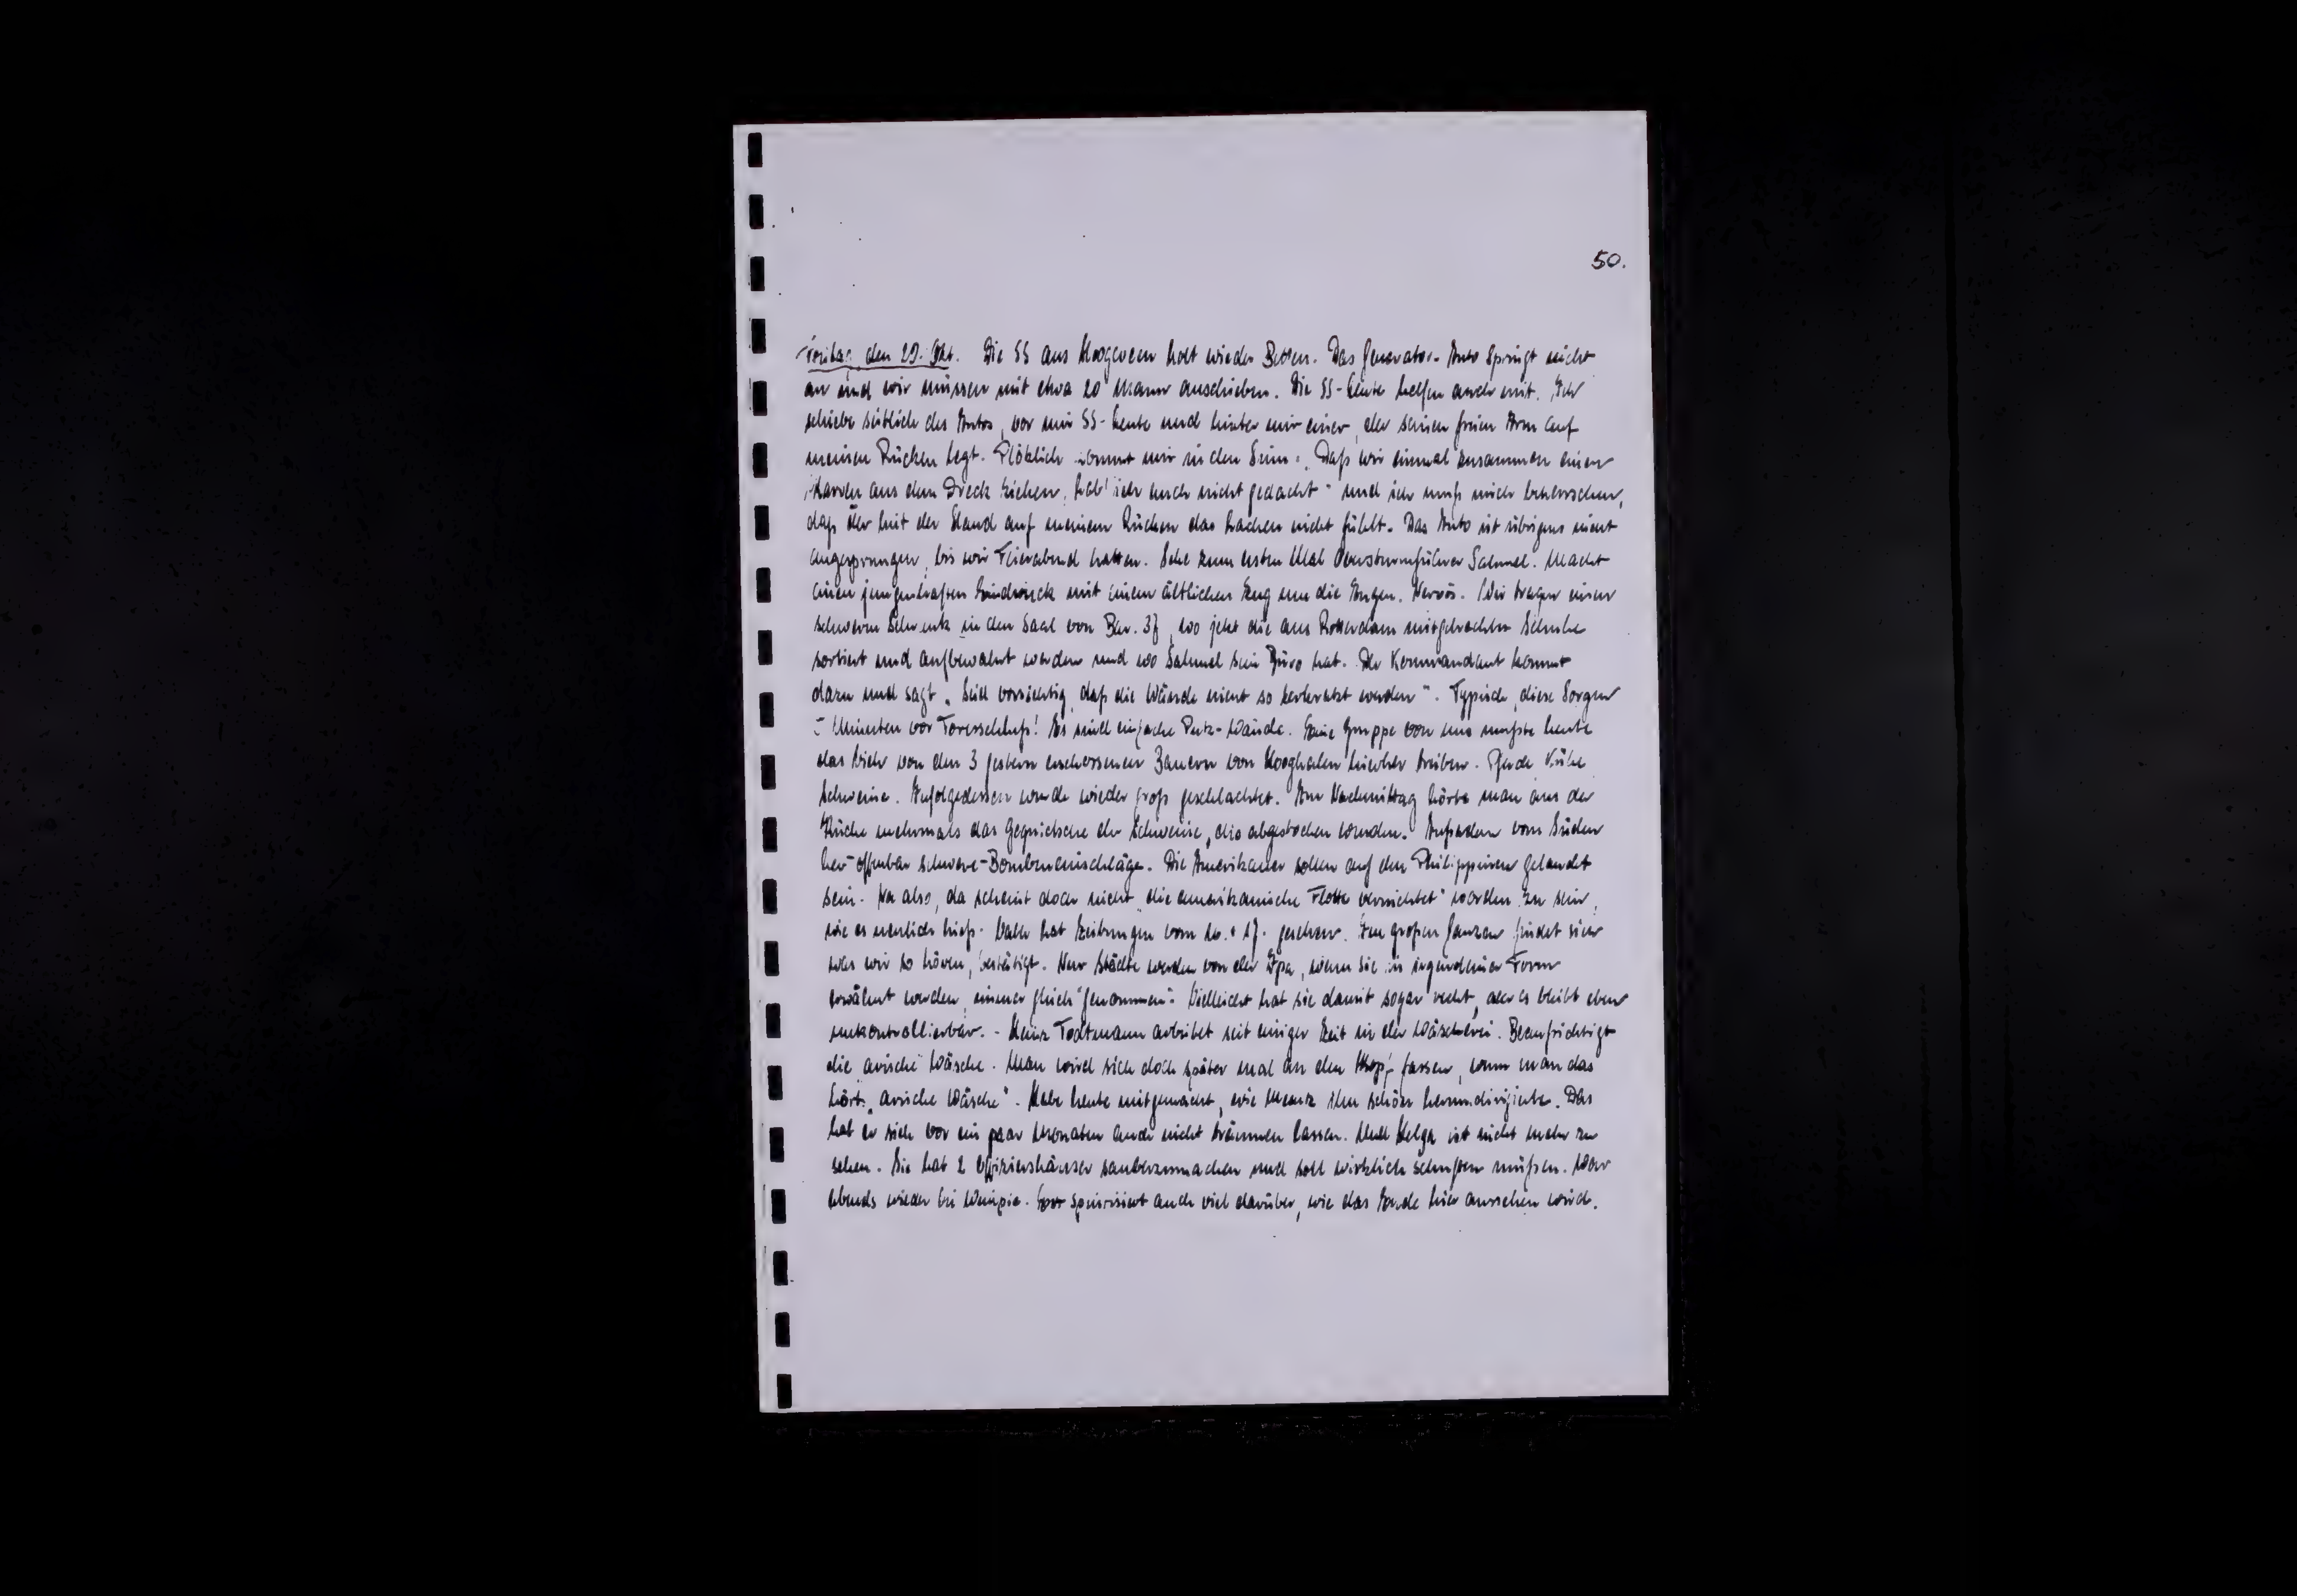 50.
Freitag den 20. Okt. Die SS aus Hoogeveen holt wieder Betten. Das Generator-Auto springt nicht
an und wir müssen mit etwa 20 Mann anschieben. Die SS-Leute helfen auch mit. Ich
schiebe seitlich des Autos, vor mir SS-Leute und hinter mir einer, der seinen freien Arm auf
meinen Rücken legt. Plötzlich kommt mir in den Sinn: „Daß wir einmal zusammen einen
Karren aus dem Dreck ziehen, hab' ich auch nicht gedacht" und ich muß mich beherrschen,
daß der mit der Hand auf meinem Rücken das Lachen nicht fühlt. Das Auto ist übrigens nicht
angesprungen, bis wir Feierabend hatten. Sehe zum ersten Mal Obersturmführer Salmel. Macht
einen jungenhaften Eindruck mit einem ältlichen Zug um die Augen. Nervös. Wir tragen einen
schweren Schrank in den Saal von Bar. 37, wo jetzt die aus Rotterdam mitgebrachten Schuhe
sortiert und aufbewahrt werden und wo Salmel sein Büro hat. Der Kommandant kommt
dazu und sagt „Seid vorsichtig, daß die Wände nicht so zerkratzt werden". Typisch, diese Sorgen
5 Minuten vor Toresschluß! Es sind einfache Putz-Wände. Eine Gruppe von uns mußte heute
das Vieh von den 3 gestern erschossenen Bauern von Hooghalen hierher treiben. Pferde, Kühe
Schweine. Infolgedessen wurde wieder groß geschlachtet. Am Nachmittag hörte man aus der
Küche mehrmals das Gequietsche der Schweine, die abgestochen wurden. Außerdem vom Süden
her offenbar schwere Bombeneinschläge. Die Amerikaner sollen auf den Philippinen gelandet
sein. Na also, da scheint doch nicht „die amerikanische Flotte vernichtet" worden zu sein,
wie es neulich hieß. hat Zeitungen vom 16. + 17. gesehen. Im großen Ganzen findet sich
was wir so hören, bestätigt. Nur Städte werden von der Ipa, wenn sie in irgendeiner Form
erwähnt werden, immer gleich "genommen". Vielleicht hat sie damit sogar recht, aber es bleibt eben
unkontrollierbar. - Heinz Todtmann arbeitet seit einiger Zeit in der Wäscherei. Beaufsichtigt
die arische Wäsche. Man wird sich doch später mal an den Kopf fassen, wenn man das
hört: „arische Wäsche". Habe heute mitgemacht, wie ihn schön herumdirigierte. Das
hat er sich vor ein paar Monaten auch nicht träumen lassen. Und Helga ist nicht mehr zu
sehen. Sie hat 2 Offiziershäuser sauberzumachen und soll wirklich schuften müßen. War
abends wieder bei Wimpie. spinisiert auch viel darüber, wie das Ende hier aussehen wird.